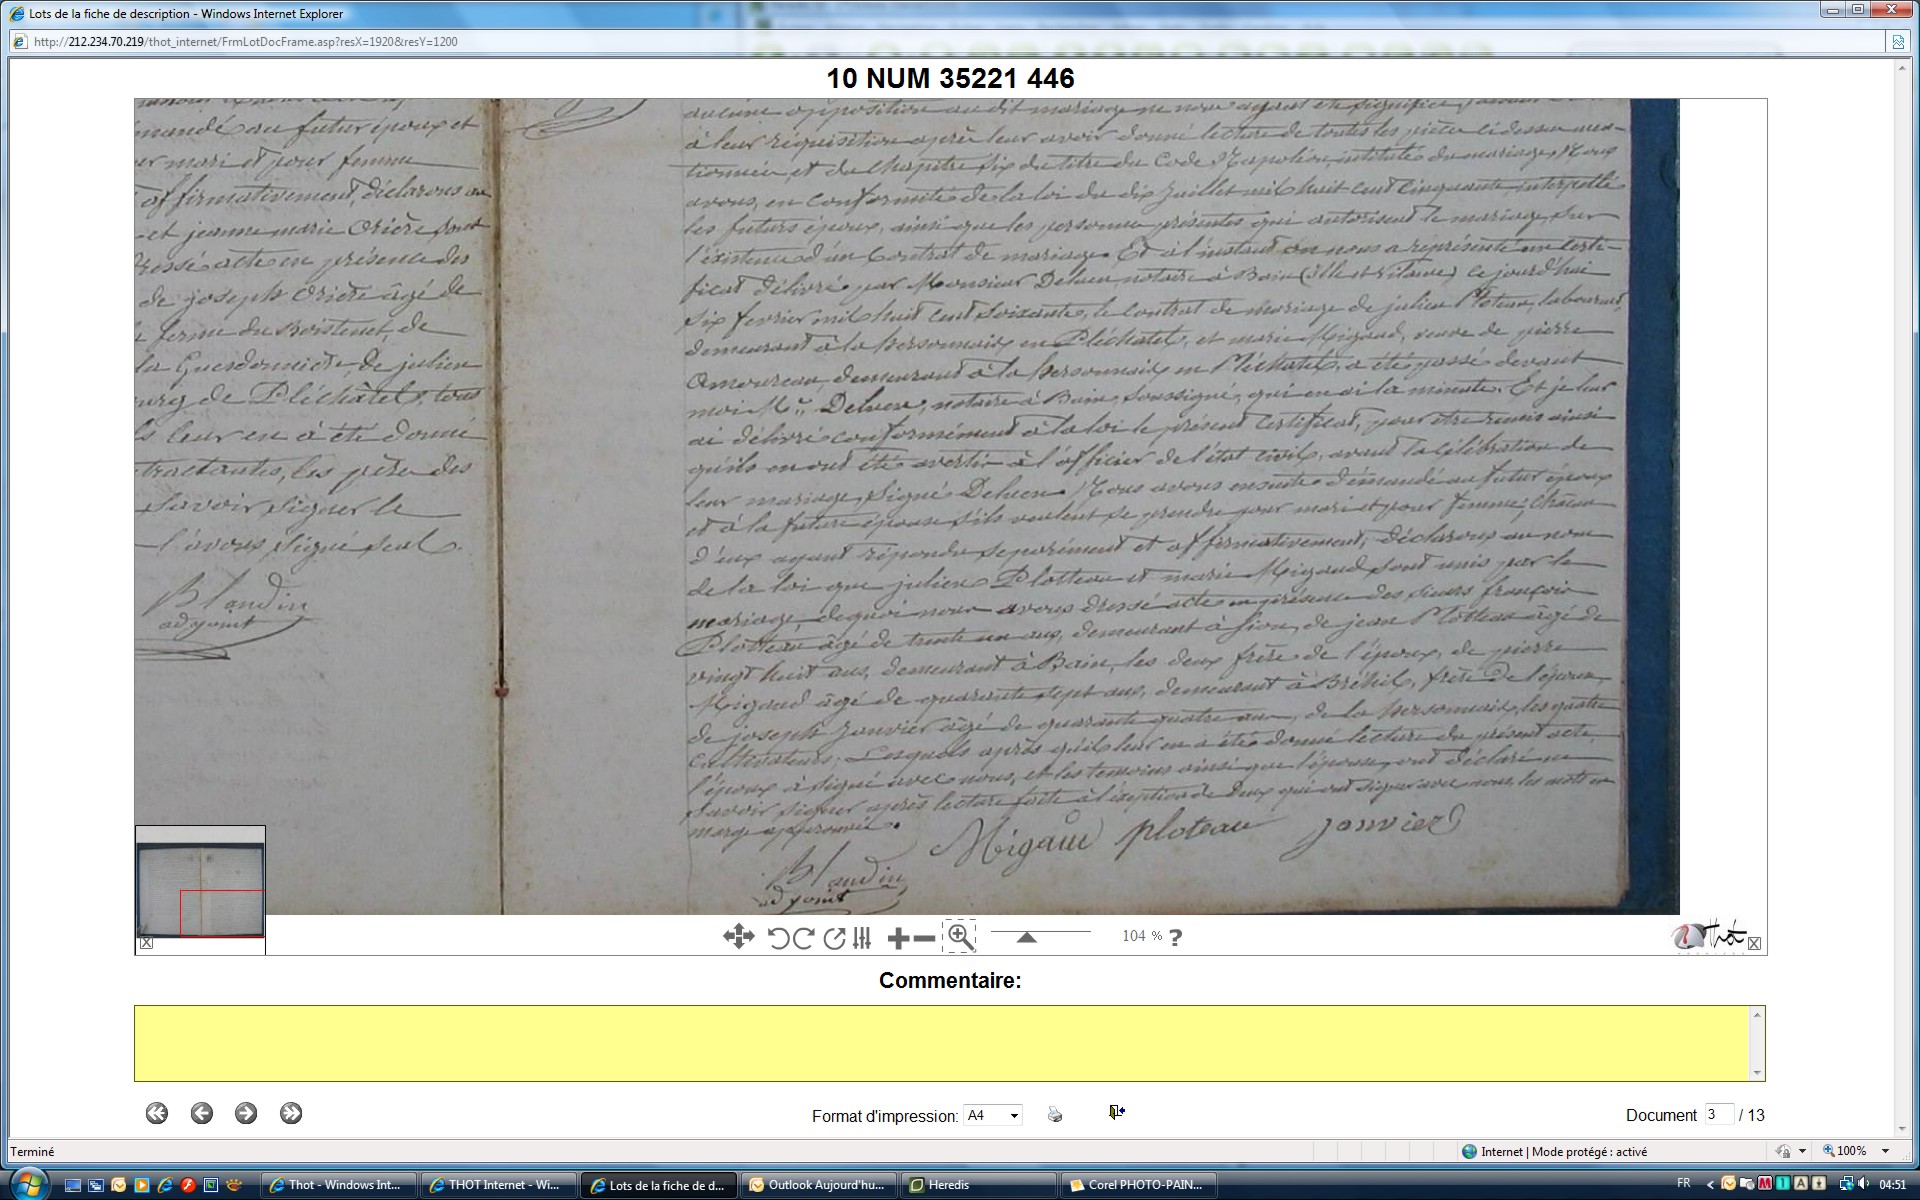 Lots de la fiche de description - Windows Internet Explorer
http://212.234.70.219/thot_internet/FrmLotDocFrame.asp?resX=1920&resY=1200
10 NUM 35221 446
mandé au futur époux et
mari et pour femme
affirmativement, déclarons au
et jeanne marie Orière sont
dressé acte en présence des
de joseph Orière âgé de
ferme du Boistenet, de
la Guesdonnière de julien
bourg de Pléchâtel, tous
leur en a été donné
tractantes, les père des
savoir signer le
l'avons signé seul.
Blandin
adjoint
aucune opposition au dit mariage ne nous ayant été signifiée
à leur réquisition après leur avoir donné lecture de toutes les pièces ci dessus men-
tionnées et du chapitre six du titre du Code Napoléon, intitulé du mariage, Nous
avons, en conformité de la loi du dix Juillet mil huit cent cinquante interpellé
les futurs époux, ainsi que les personnes présentes qui autorisent le mariage, sur
l'existence d'un Contrat de mariage. Et à l'instant on nous a représenté un certi-
ficat délivré par Monsieur Delven notaire à Bain (ille et vilaine) ce jourd'hui
six fevrier mil huit cent soixante, le contrat de mariage de julien Ploteau, laboureur,
demeurant à la hersonnais en Pléchatel, et marie Migaud, veuve de pierre
Amoureau demeurant à la hersonnais en Pléchatel, a été passé devant
moi Me Delven, notaire à Bain, soussigné, qui en ai la minute. Et je leur
ai délivré conformément à la loi le présent certificat, pour être remis ainsi
qu'ils en ont été avertis à l'officier de l'état civil, avant la célébration de
leur mariage, Signé Delven. Nous avons ensuite demandé au futur époux
et à la future épouse s'ils veulent se prendre pour mari et pour femme, chacun
d'eux ayant répondu séparément et affirmativement, déclarons au nom
de la loi que julien Plotteau et marie Migaud sont unis par le
mariage, de quoi nous avons dressé acte en présence des sieurs françois
Plotteau âgé de trente un ans, demeurant à Sion, de jean Plotteau âgé de
vingt huit ans, demeurant à Bain, les deux frère de l'époux, de pierre
Migaud âgé de quarante sept ans, demeurant à Bréhil, frère de l'épouse,
de joseph Janvier âgé de quarante quatre ans, de la hersonnais, les quatre
Cultivateurs, Lesquels après qu'il leur en a été donné lecture du présent acte,
l'époux a signé avec nous, et les temoins ainsi que l'épouse ont déclaré ne
savoir signer après lecture faite à l'exeption de deux qui ont signé avec nous, les mots en
marge approuvés.
Migaud ploteau janvier
Blandin
adjoint
104 % ?
Thot
Commentaire:
Format d'impression: A4
Document 3 / 13
Terminé
Internet | Mode protégé : activé
100%
Thot - Windows Int...
THOT Internet - Wi...
Lots de la fiche de d...
Outlook Aujourd'hu...
Heredis
Corel PHOTO-PAIN...
FR
04:51